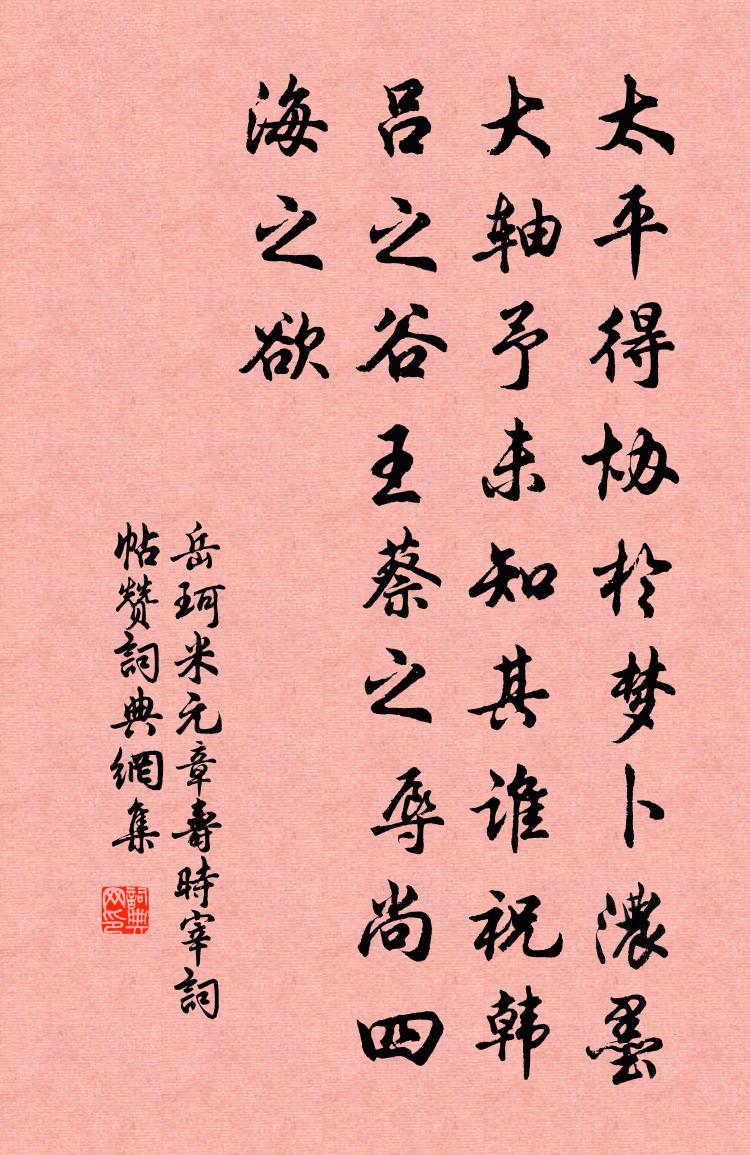 太平得协於梦卜浓墨
大轴予未知其谁祝韩
吕之谷王蔡之辱尚四
海之欲
岳珂米元章寿时宰词
帖赞词典网集
詞典
网印